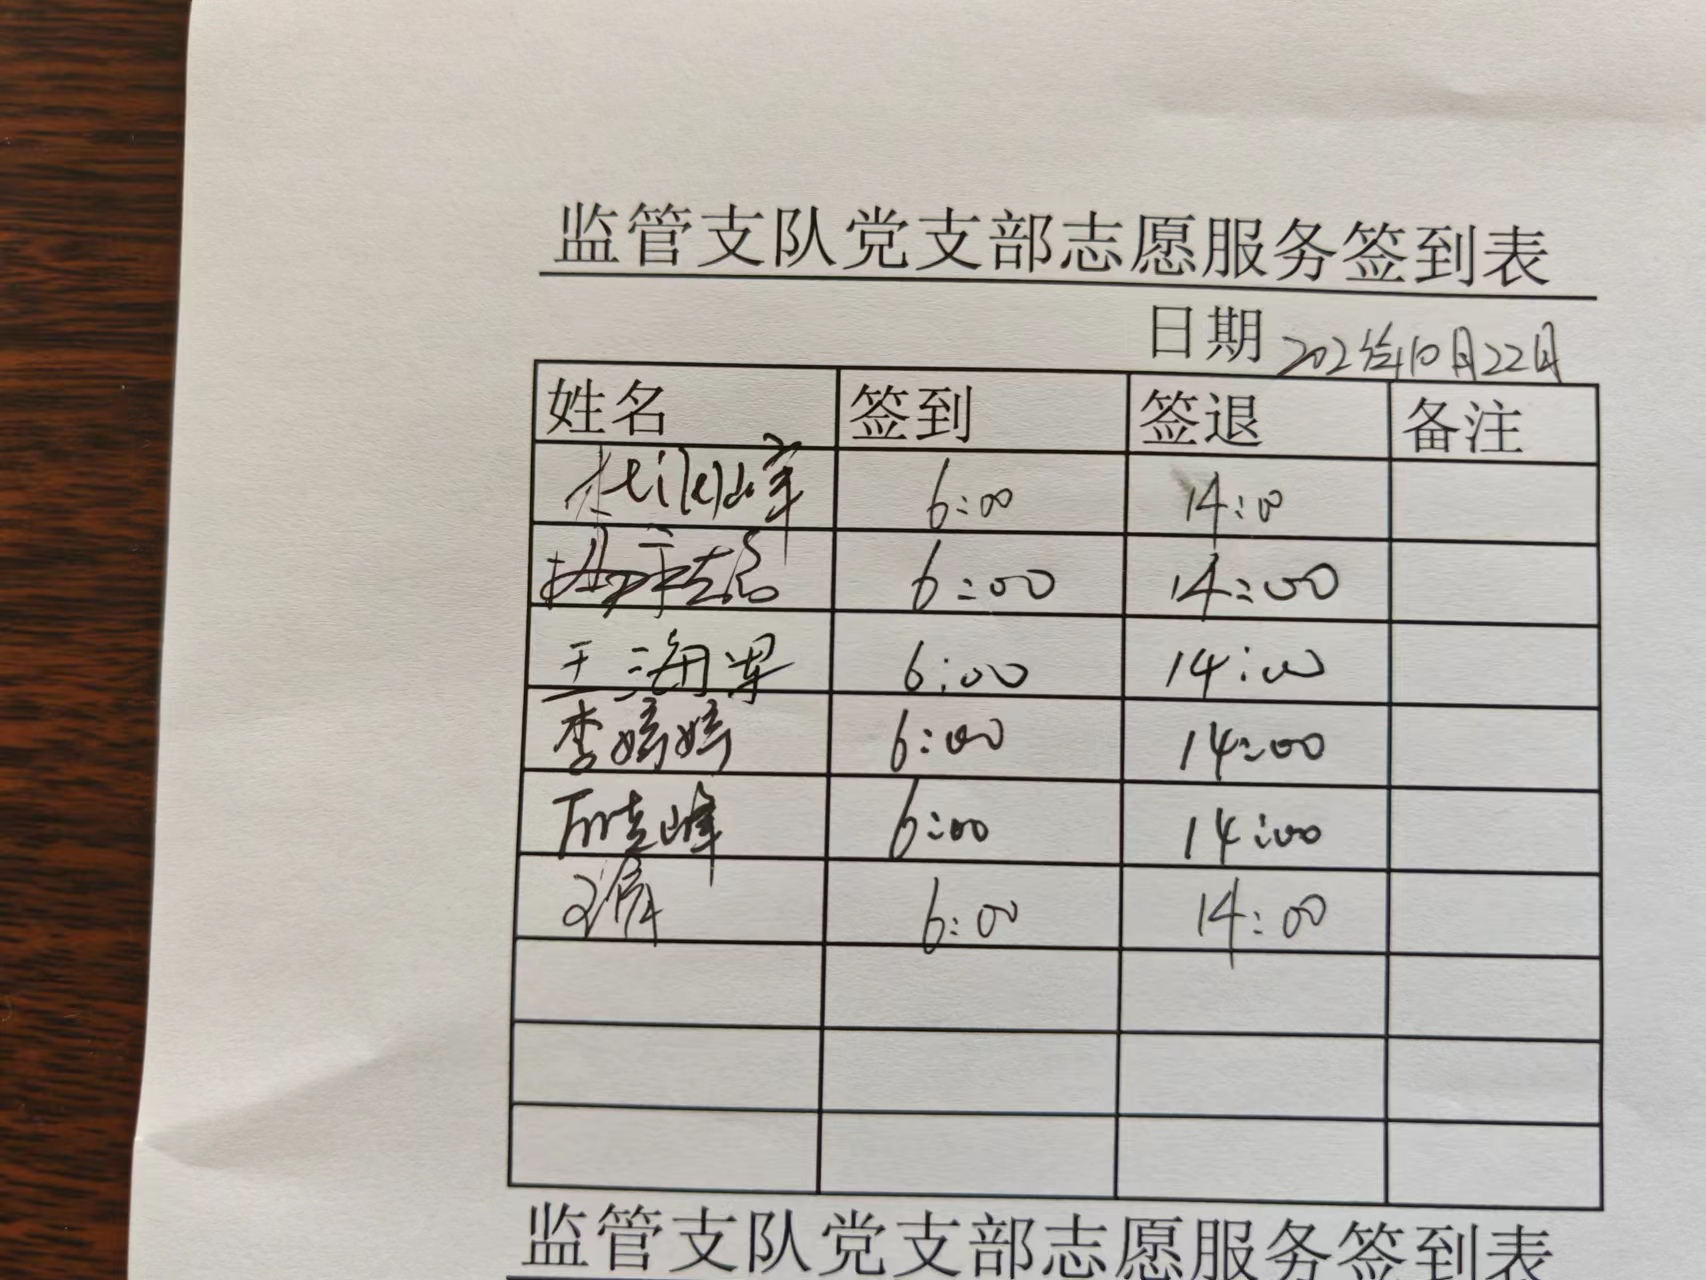 监管支队党支部志愿服务签到表
日期 2022年10月22日
姓名 签到 签退 备注
6:00 14:00
6:00 14:00
王海军 6:00 14:00
李婷婷 6:00 14:00
晓峰 6:00 14:00
6:00 14:00
监管支队党支部志愿服务签到表